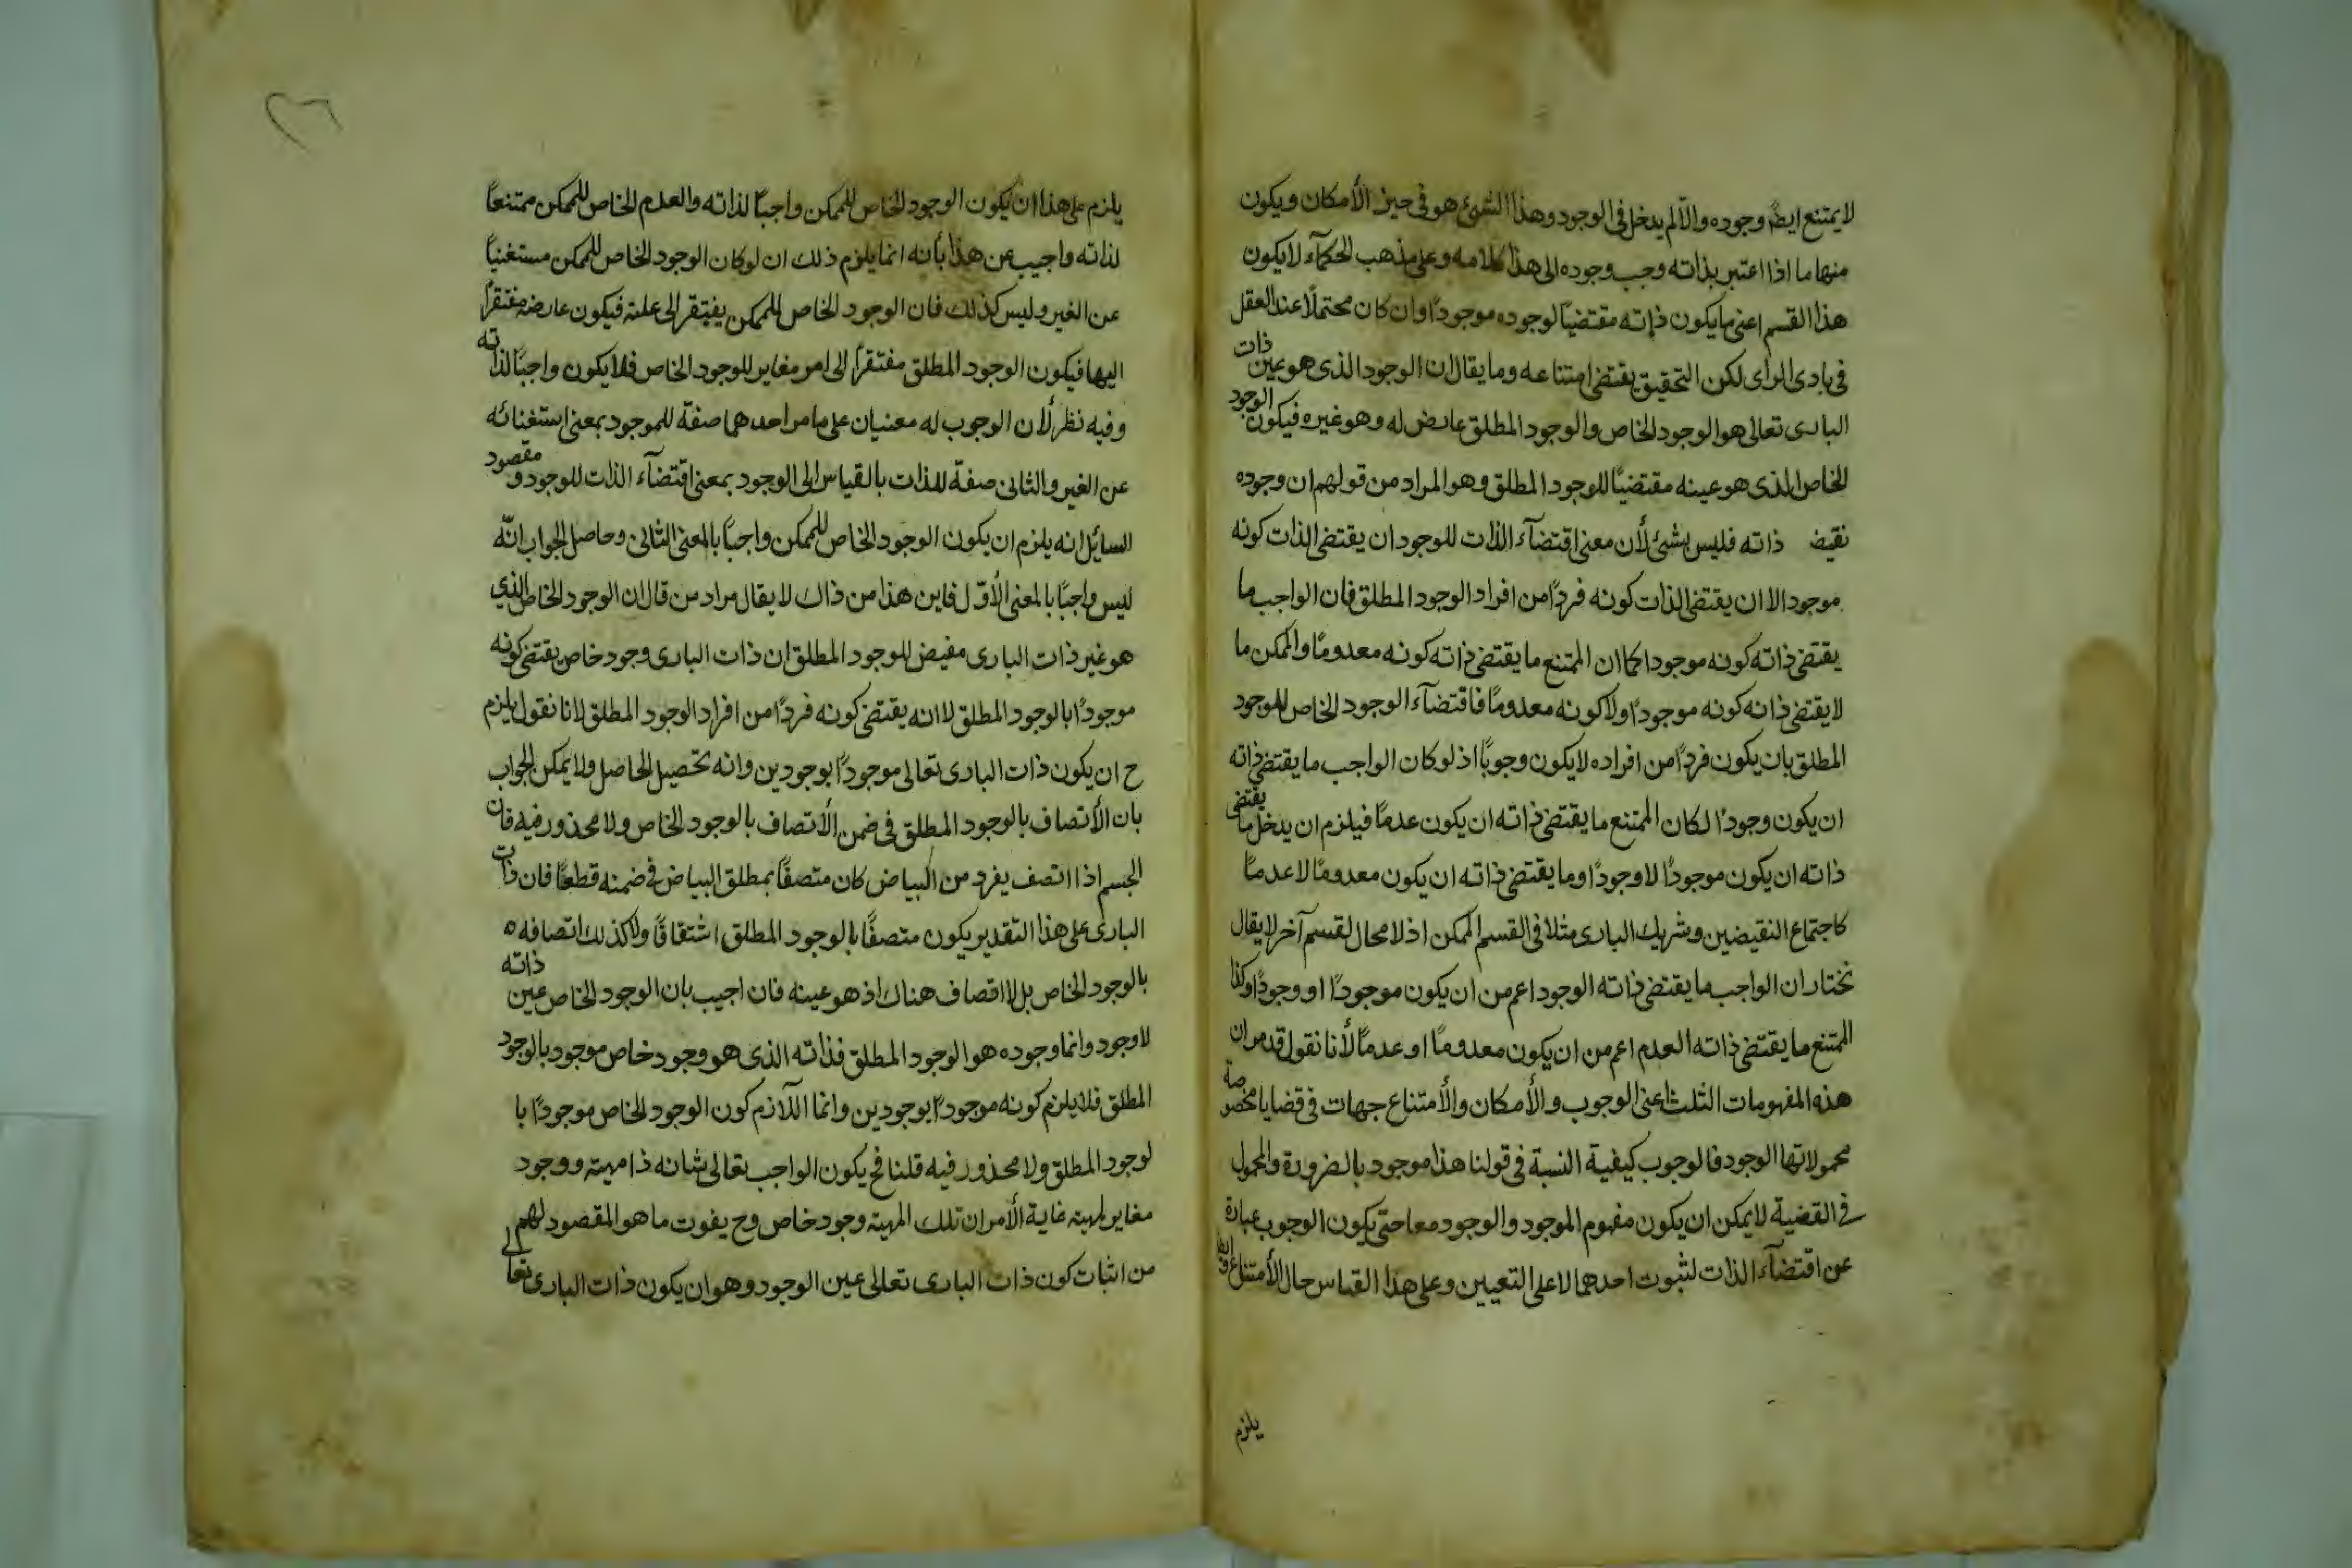 لا يمتنع ايضً وجوده والا لم يدخل في الوجود وهذا الشئ هو في حيز الأمكان ويكون
منها ما اذا اعتبر بذاته وجب وجوده الى هذا كلامه وعلى مذهب الحكمآء لا يكون
هذا القسم اعنى ما يكون ذاته مقتضيًا لوجوده موجودًا وان كان محتملًا عند العقل
في بادى الرأى لكن التحقيق يقتضى امتناعه وما يقال ان الوجود الذى هو عين ذات
البارى تعالى هو الوجود الخاص والوجود المطلق عارض له وهو غيره فيكون الوجود
الخاص الذى هو عينه مقتضيًا للوجود المطلق وهو المراد من قولهم ان وجوده
نقيض ذاته فليس بشئ لأن معنى اقتضآء الذات للوجود ان يقتضى الذات كونه
موجود الا ان يقتضى الذات كونه فردًا من افراد الوجود المطلق فان الواجب ما
يقتضى ذاته كونه موجودا كما ان الممتنع ما يقتضى ذاته كونه معدومًا والممكن ما
لا يقتضى ذاته كونه موجودًا ولا كونه معدومًا فاقتضآء الوجود الخاص للوجود
المطلق بان يكون فردًا من افراده لا يكون وجوبًا اذ لو كان الواجب ما يقتضى ذاته
ان يكون وجودًا لكان الممتنع ما يقتضى ذاته ان يكون عدمًا فيلزم ان يدخل ما يقتضى
ذاته ان يكون موجودًا لا وجودًا وما يقتضى ذاته ان يكون معدومًا لا عدمًا
كاجتماع النقيضين وشريك البارى مثلا في القسم الممكن اذ لا محال لقسم آخر لا يقال
نختار ان الواجب ما يقتضى ذاته الوجود اعم من ان يكون موجودًا او وجودًا وكذا
الممتنع ما يقتضى ذاته العدم اعم من ان يكون معدومًا او عدمًا لأنا نقول قد مر ان
هذه المفهومات الثلث اعنى الوجوب والأمكان والأمتناع جهات في قضايا مخصوصة
محمولاتها الوجود فالوجوب كيفية النسبة في قولنا هذا موجود بالضرورة والمحمول
في القضية لا يمكن ان يكون مفهوم الموجود والوجود معا حتى يكون الوجوب عبارة
عن اقتضآء الذات لثبوت احدهما لا على التعيين وعلى هذا القياس حال الأمتناع وايضا
يلزم
يلزم على هذا ان يكون الوجود الخاص للممكن واجبًا لذاته والعدم الخاص للممكن ممتنعًا
لذاته واجيب عن هذا بأنه انما يلزم ذلك ان لو كان الوجود الخاص للممكن مستغنيًا
عن الغير وليس كذلك فان الوجود الخاص للممكن يفتقر الى علته فيكون عارضه مفتقرًا
اليها فيكون الوجود المطلق مفتقرًا الى امر مغاير للوجود الخاص فلا يكون واجبًا لذاته
وفيه نظر لأن الوجوب له معنيان على ما مر احدهما صفة للموجود بمعنى استغنائه
عن الغير والثانى صفة للذات بالقياس الى الوجود بمعنى اقتضآء الذات للوجود ومقصود
السائل انه يلزم ان يكون الوجود الخاص للممكن واجبًا بالمعنى الثانى وحاصل الجواب انّه
ليس واجبًا بالمعنى الأوّل فاين هذا من ذاك لا يقال مراد من قال ان الوجود الخاص الذي
هو غير ذات البارى مفيض للوجود المطلق ان ذات البارى وجود خاص يقتضى كونه
موجودًا بالوجود المطلق لا انه يقتضى كونه فردًا من افراد الوجود المطلق لانا نقول يلزم
ح ان يكون ذات البارى تعالى موجودًا بوجودين وانه تحصيل الحاصل ولا يمكن الجواب
بان الأتصاف بالوجود المطلق في ضمن الأتصاف بالوجود الخاص ولا محذور فيه فان
الجسم اذا اتصف بفرد من البياض كان متصفًا بمطلق البياض في ضمنه قطعًا فان ذات
البارى على هذا التقدير يكون متصفًا بالوجود المطلق اشتقاقًا ولا كذلك اتصافه
بالوجود الخاص بل لا اقصاف هناك اذ هو عينه فان اجيب بان الوجود الخاص عين ذاته
لا وجود وانما وجوده هو الوجود المطلق فذاته الذى هو وجود خاص موجود بالوجود
المطلق فلا يلزم كونه موجودًا بوجودين وانما اللآزم كون الوجود الخاص موجودًا با
لوجود المطلق ولا محذور فيه قلنا فح يكون الواجب تعالى شانه ذا مهية ووجود
مغاير لمهيته غاية الأمر ان تلك المهية وجود خاص وح يفوت ما هو المقصود لهم
من اثبات كون ذات البارى تعالى عين الوجود وهو ان يكون ذات البارى تعالى